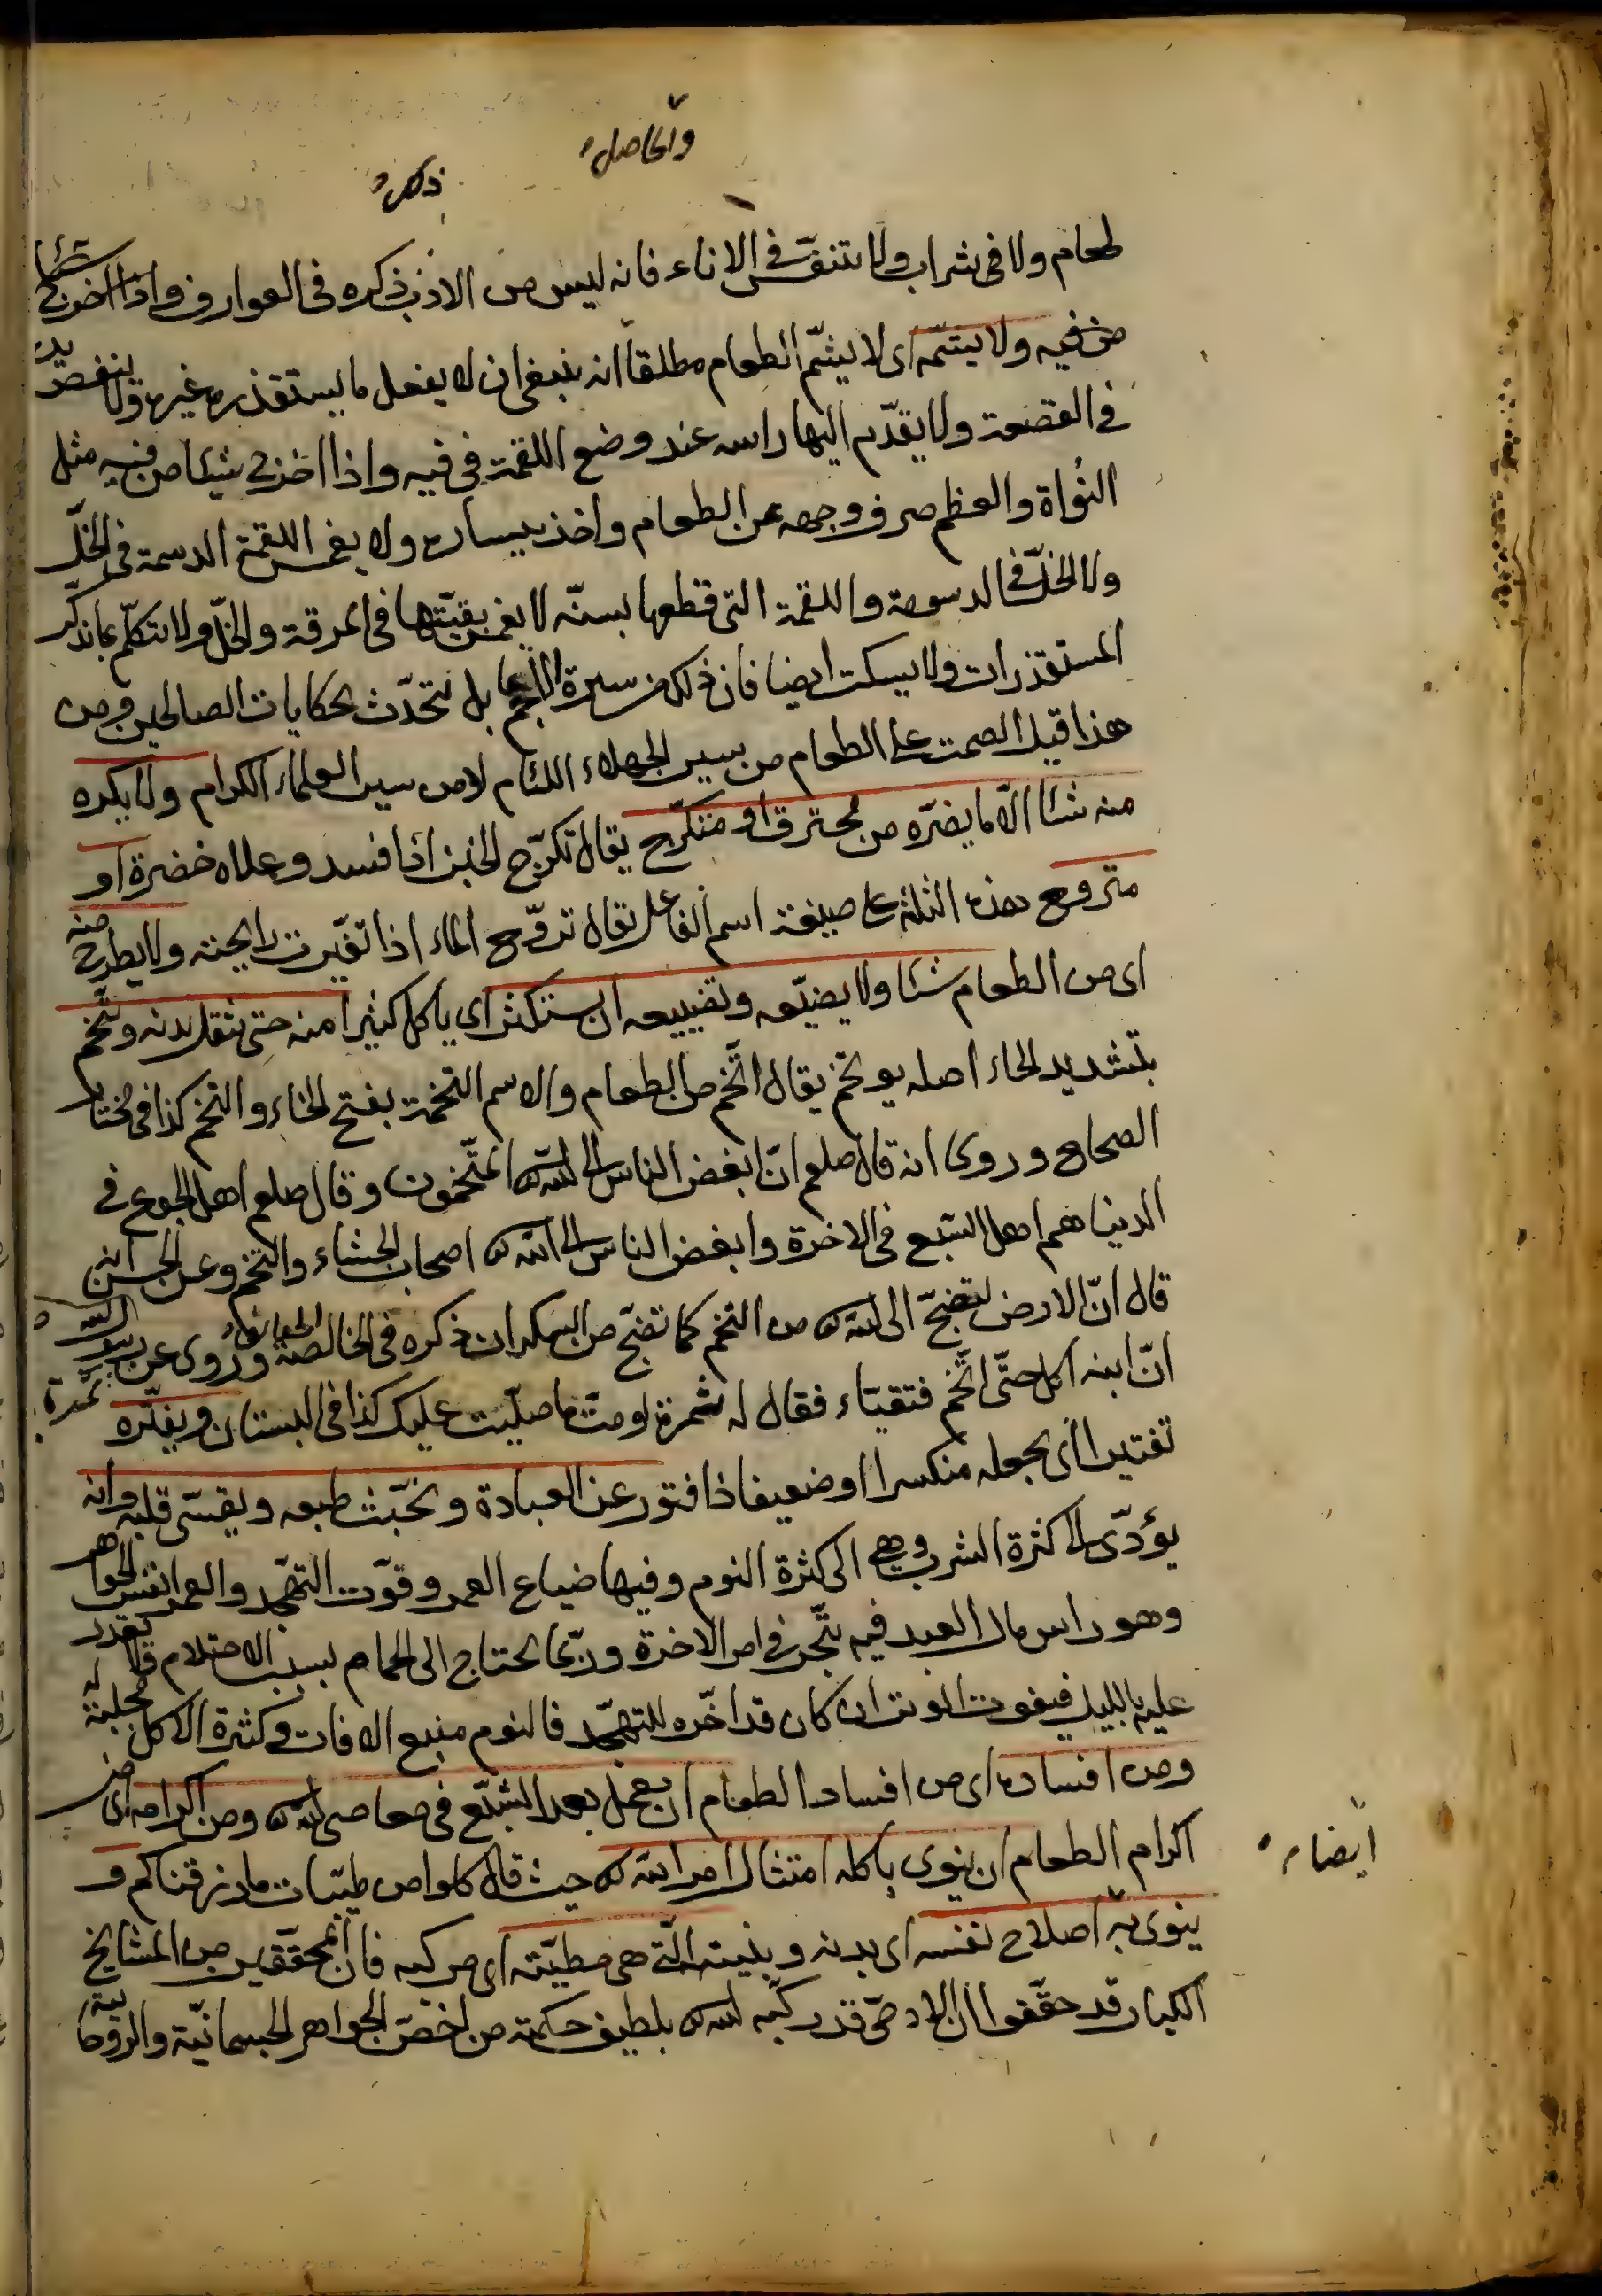 والحاصل
ذكره
طعام ولا في شراب ولا يتنفّس في الاناء فانه ليس من الادب ذكره في العوارف واذا اخرج شيئا
من فيه ولا يشمّه اى لا يشمّ الطعام مطلقا انه ينبغي ان لا يفعل ما يستقذره غيره ولا ينفض يده
في القصعة ولا يقدّم اليها راسه عند وضع اللقمة في فيه واذا اخرج شيئا من فيه مثل
النواة والعظم صرف وجهه عن الطعام واخذ بيساره ولا يغمس اللقمة الدسمة في الخلّ
ولا الخلّ في الدسومة واللقمة التي قطعها بسنّه لا يغمس بقيّتها في المرقة والخلّ ولا يتكلّم بما يذكّر
المستقذرات ولا يسكت ايضا فان ذلك من سيرة الاعاجم بل يتحدّث بحكايات الصالحين ومن
هذا قيل الصمت على الطعام من سير الجهلاء اللئام لا من سير العلماء الكرام ولا يكره
منه شئا الّا ما يضرّه من محترق او متكرّج يقال تكرّج الخبز اذا فسد وعلاه خضرة او
متروح هذه الثلثة على صيغة اسم الفاعل يقال تروّح الماء اذا تغيّرت رايحته ولا يطرح منه
اى من الطعام شئا ولا يضيّعه وتضييعه ان يستكثر اى ياكل كثيرا منه حتى يثقل بدنه ويتّخم
بتشديد الخاء اصله يوتخم يقال اتّخم من الطعام والاسم التخمة بفتح الخاء والتخم كذا في مختار
الصحاح وروى انه قال صلعم انّ ابغض الناس الى الله المتّخمون وقال صلعم اهل الجوع في
الدنيا هم اهل الشبع في الاخرة وابغض الناس الى الله اصحاب الجشاء والتخم وعن الحسن انه
قال انّ الارض لتضجّ الى الله من التخم كما تضجّ من السكران ذكره في الخالصة الحقائق وروى عن
انّ ابنه اكل حتّى اتّخم فتقيّاء فقال له سمرة لو متّ ما صلّيت عليك كذا في البستان ويفتّره
تفتيرا اى يجعله منكسرا او ضعيفا ذا فتور عن العبادة ويخبّث طبعه ويقسّى قلبه وانه
يؤدّى الى كثرة الشرب وهي الى كثرة النوم وفيها ضياع العمر وفوت التهجّد والعمر انفس الجواهر
وهو راس مال العبد فيه يتّجر في امر الاخرة وربّما يحتاج الى الحمام بسبب الاحتلام فلا يقدر
عليه بالليل فيفوت الوتر ان كان قد اخّره للتهجّد فالنوم منبع الافات وكثرة الاكل مجلبة له
ومن افساده اى من افساد الطعام ان يعمل بعد الشبع في معاصى الله ومن اكرامه اى من
اكرام الطعام ان ينوى باكله امتثال امر الله حيث قال كلوا من طيّبات ما رزقناكم و
ايضا
ينوى به اصلاح نفسه اى بدنه وبنيته الّتي هي مطيّته اى مركبه فان المحقّقين من المشايخ
الكبار قد حقّقوا ان الادمىّ قد ركّبه الله بلطيف حكمته من اخصّ الجواهر الجسمانيّة والروحانية